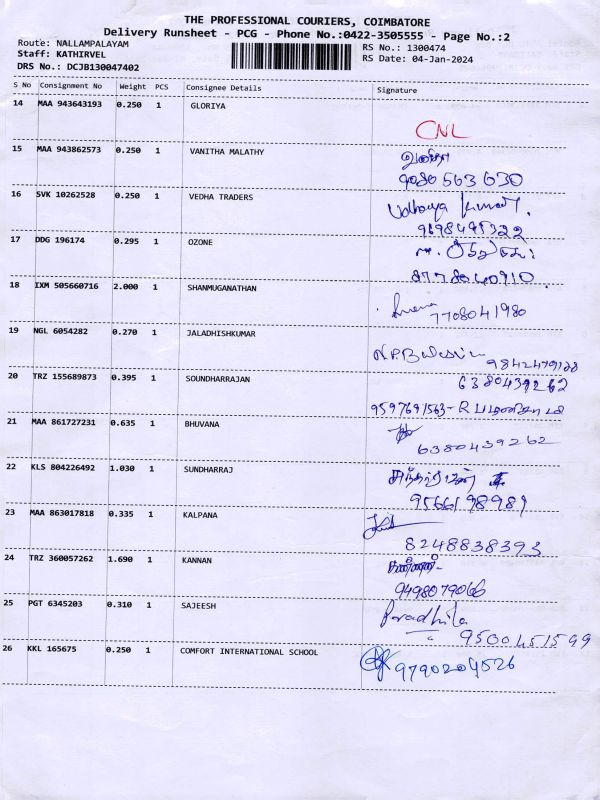 THE PROFESSIONAL COURIERS, COIMBATORE
Delivery Runsheet - PCG - Phone No.:0422-3505555 - Page No.:2
Route: NALLAMPALAYAM
Staff: KATHIRVEL
DRS No.: DCJB130047402
RS No.: 1300474
RS Date: 04-Jan-2024
S No Consignment No Weight PCS Consignee Details Signature
14 MAA 943643193 0.250 1 GLORIYA
CNL
15 MAA 943862573 0.250 1 VANITHA MALATHY
வனிதா
9080563630
16 SVK 10262528 0.250 1 VEDHA TRADERS
Udhaya Kumar T.
9198495322
17 DDG 196174 0.295 1 OZONE
8778040910.
18 IXM 505660716 2.000 1 SHANMUGANATHAN
7708041980
19 NGL 6054282 0.270 1 JALADHISHKUMAR
20 TRZ 155689873 0.395 1 SOUNDHARRAJAN
6380439262
9597691563 - R
21 MAA 861727231 0.635 1 BHUVANA
6380439262
22 KLS 804226492 1.030 1 SUNDHARRAJ
9566198989
23 MAA 863017818 0.335 1 KALPANA
8248838393
24 TRZ 360057262 1.690 1 KANNAN
9498079066
25 PGT 6345203 0.310 1 SAJEESH
9500451599
26 KKL 165675 0.250 1 COMFORT INTERNATIONAL SCHOOL
9790204526